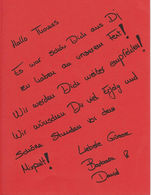 Hallo Thomas
Es war schön Dich als DJ
zu haben an unserem Fest!
Wir werden Dich weiter empfehlen!
Wir wünschen Dir viel Erfolg und
Schöne Stunden vor dem
Mischpult!
Liebste Grüsse
Barbara &
David